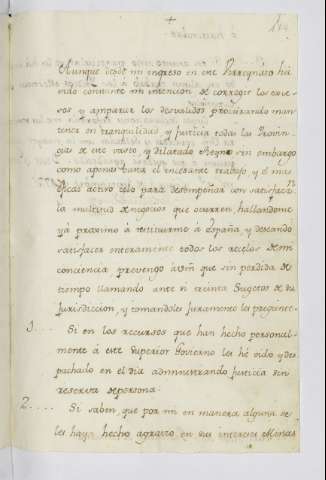 Aunque desde mi ingreso en este Virreynato há
sido constante mi intencion de corregir los exce-
sos y amparar los desvalidos procurando man-
tener en tranquilidad y justicia todas las Provin-
cias de este vasto y dilatado Reyno sin embargo
como apenas basta el incesante trabajo y el mas
eficas activo zelo para desempeñar con satisfacc.n
la multitud de negocios que ocurren, hallandome
yá proximo à restituirme à España y deseando
satisfacer enteramente todos los rezelos de mi
conciencia prevengo à Vm que sin perdida de
tiempo llamando ante si treinta Sugetos de su
Jurisdiccion, y tomandoles Juramento les pregunte.
1.... Si en los recursos que han hecho personal-
mente à este Superior Govierno les hé oido y des-
pachado en el dia administrando Justicia sin
reserva de persona.
2.... Si saben que por mi en manera alguna se
les haya hecho agravio en sus intereses Minas